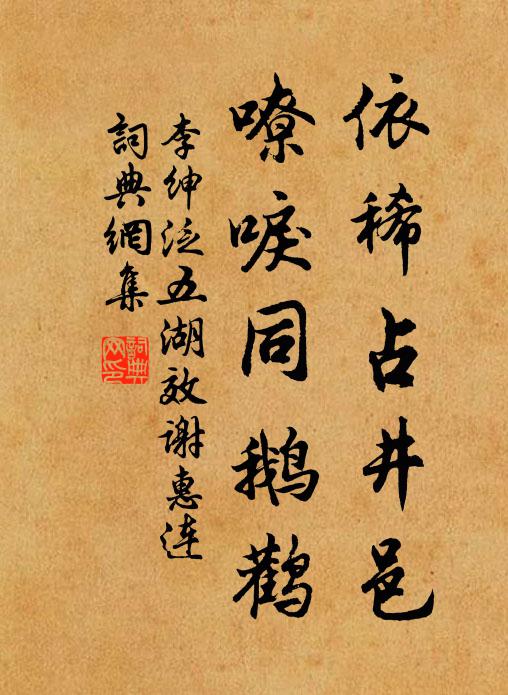 依稀占井邑
嘹唳同鹅鹳
李绅泛五湖效谢惠连
詞典網集
詞典
网印